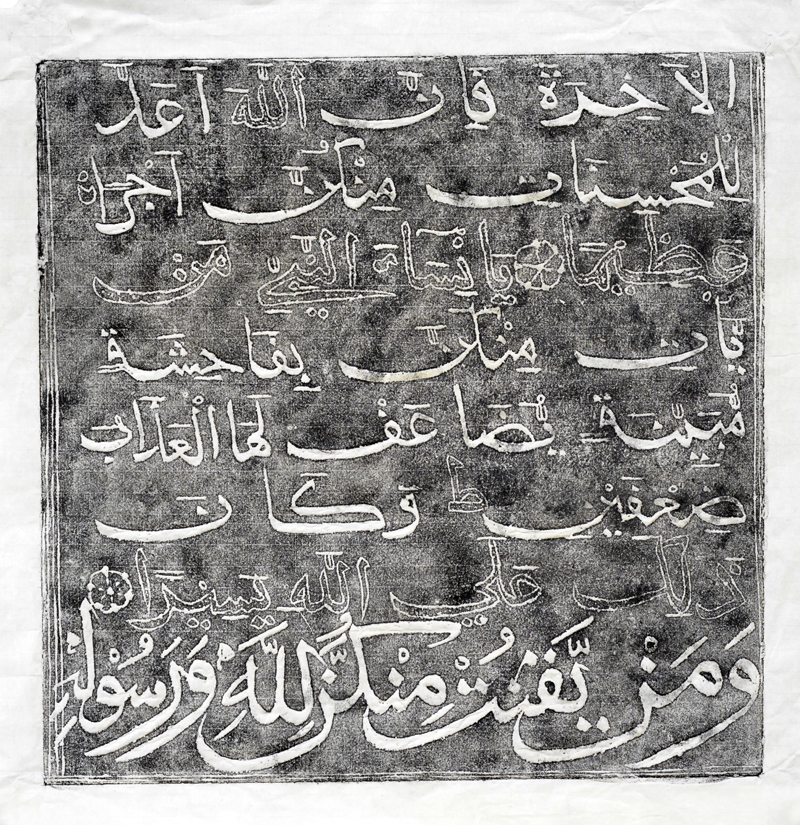 الْاٰخِرَةَ فَاِنَّ اللّٰهَ اَعَدَّ
لِلْمُحْسِنَاتِ مِنْكُنَّ اَجْرًا
عَظِيْمًا يَا نِسَاءَ النَّبِيِّ مَنْ
يَأْتِ مِنْكُنَّ بِفَاحِشَةٍ
مُبَيِّنَةٍ يُضَاعَفْ لَهَا الْعَذَابُ
ضِعْفَيْنِ ط وَكَانَ
ذٰلِكَ عَلَى اللّٰهِ يَسِيْرًا
وَمَنْ يَّقْنُتْ مِنْكُنَّ لِلّٰهِ وَرَسُوْلِهٖ